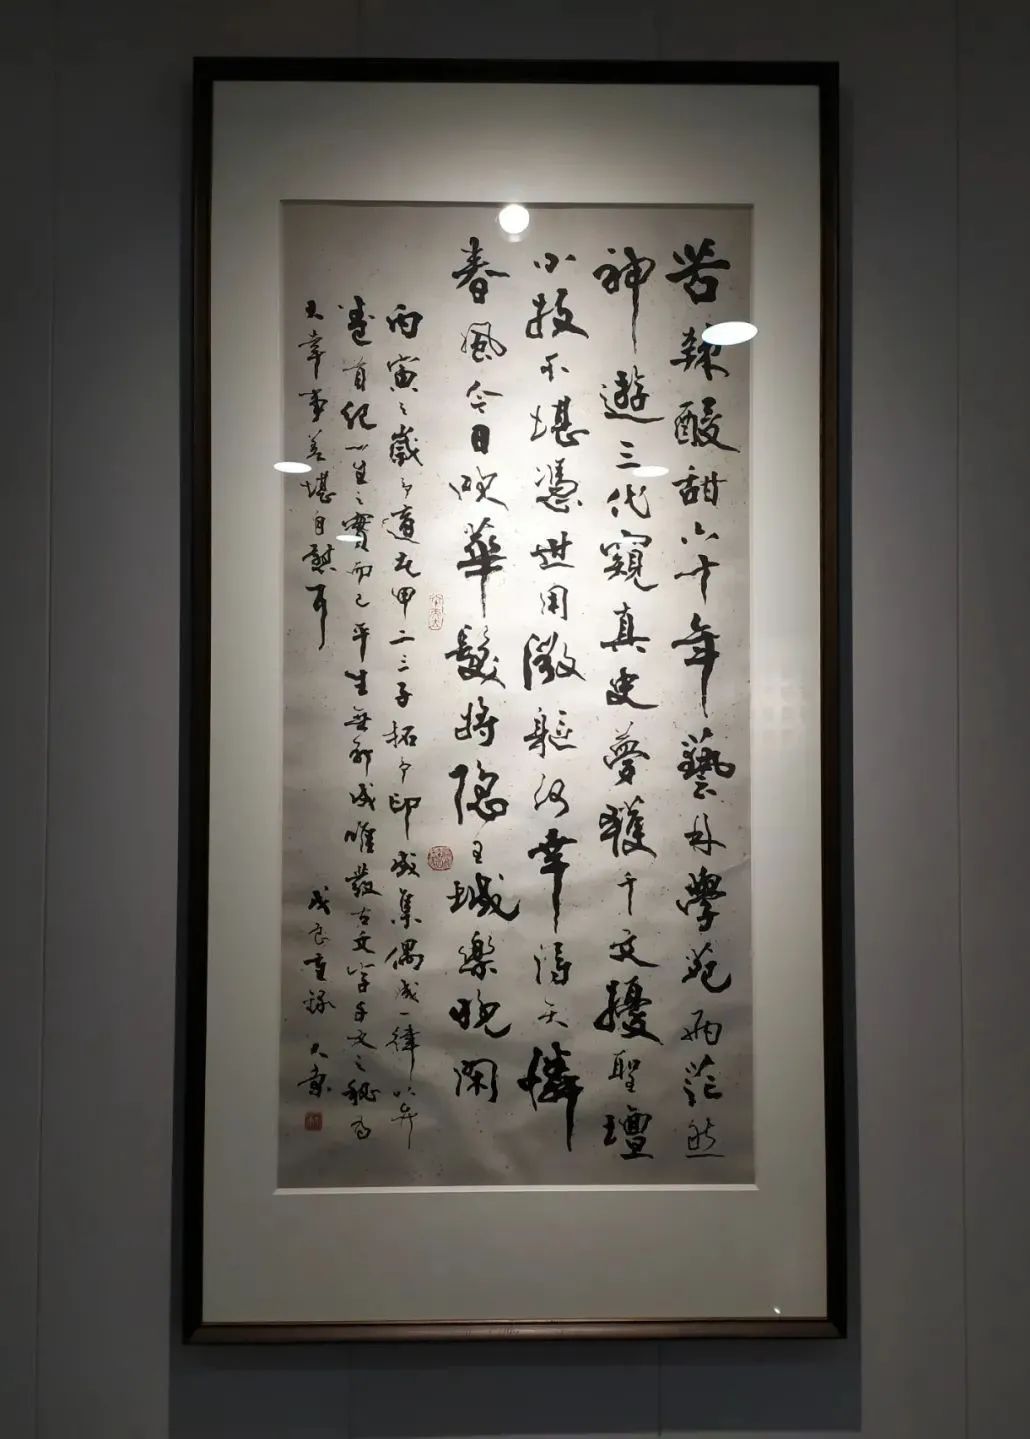 苦辣酸甜六十年藝林學苑兩茫然
神遊三代窺真史夢獲千文擾聖壇
小技不堪憑世用微軀何幸得天憐
春風今日吹華髮將隐王城樂晚閑
丙寅之歲余適花甲二三子拓余印成集偶成一律以弁
卷首紀一生之實而已平生無所成唯發古文字千文之秘為
大幸事差堪自慰耳
戊辰重録 大